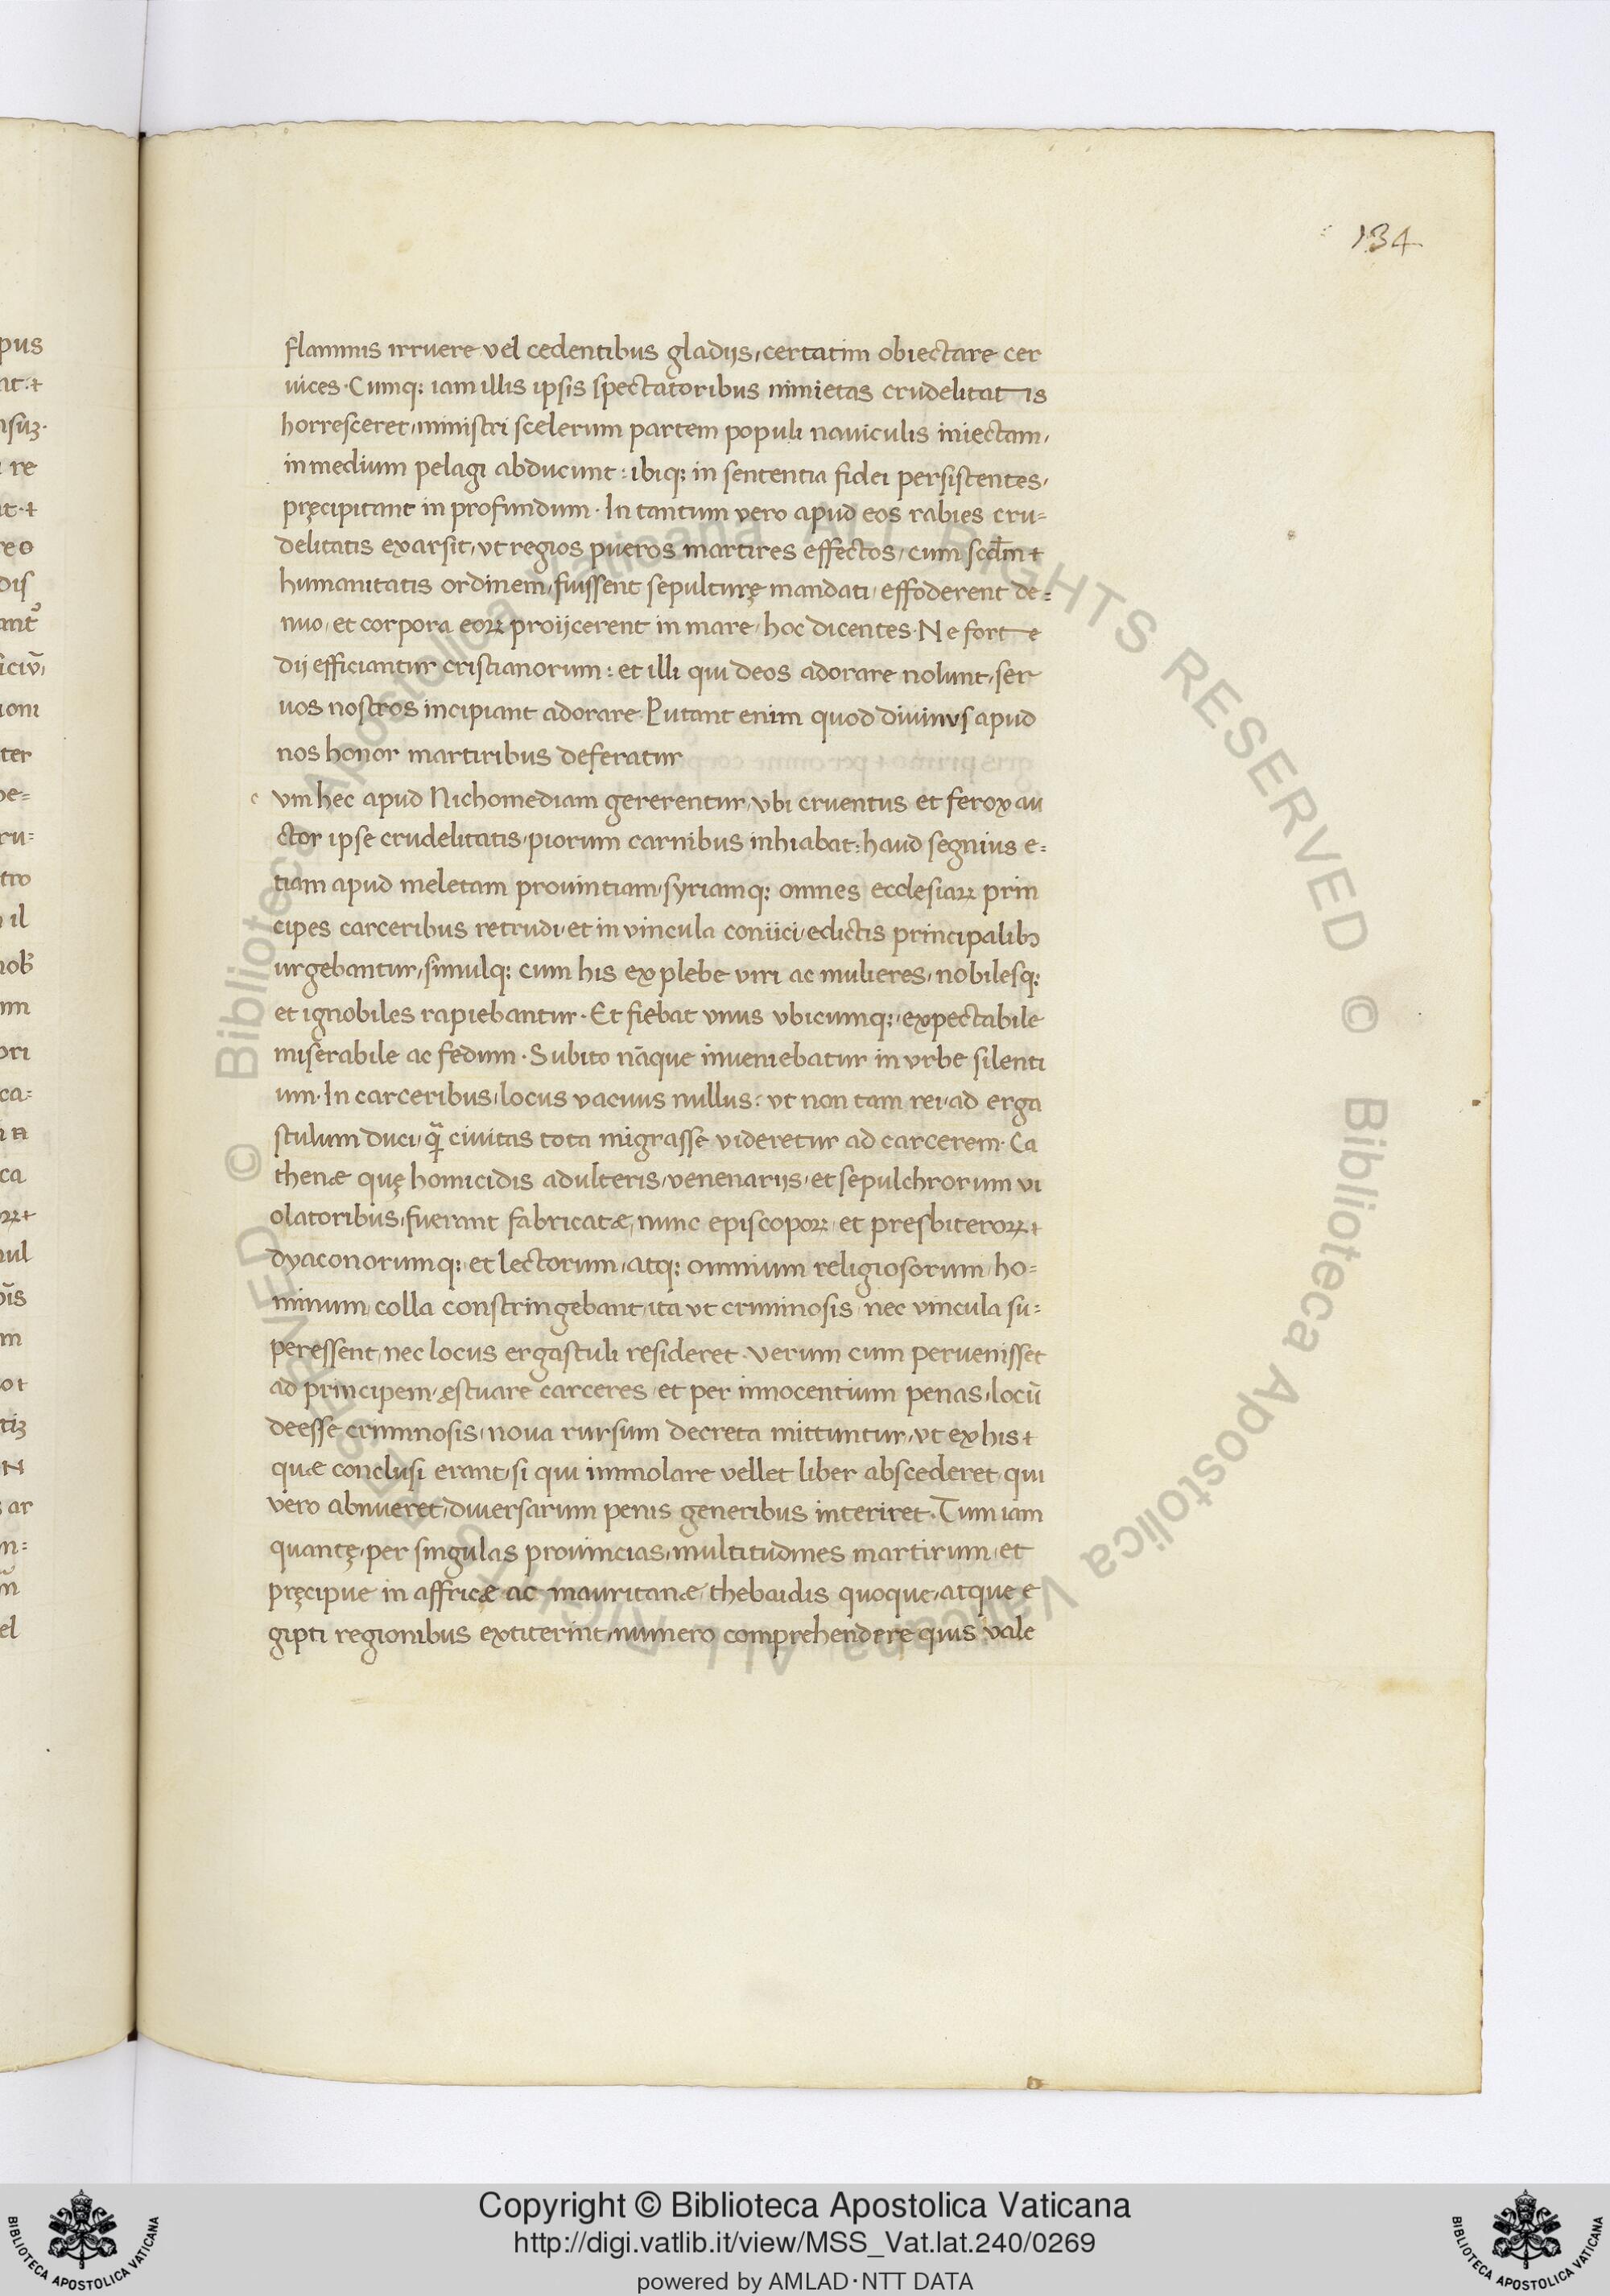 134
flammis irruere vel cedentibus gladijs, certatim obiectare cer
uices. Cumq; iam illis ipsis spectatoribus nimietas crudelitatis
horresceret, ministri scelerum partem populi nauiculis iniectam,
in medium pelagi abducunt: ibiq; in sententia fidei persistentes,
pręcipitant in profundum. In tantum vero apud eos rabies cru=
delitatis exarsit, vt regios pueros martires effectos, cum scd̄m &
humanitatis ordinem, fuissent sepulturę mandati, effoderent de=
nuo, et corpora eoꝝ proijcerent in mare, hoc dicentes. Ne forte
dij efficiantur cristianorum: et illi qui deos adorare nolunt, ser
uos nostros incipiant adorare. Putant enim quod divinus apud
nos honor martiribus deferatur
c vm hec apud Nichomediam gererentur, vbi cruentus et ferox au
ctor ipse crudelitatis, piorum carnibus inhiabat: haud segnius e=
tiam apud meletam prouintiam, syriamq; omnes ecclesiaꝝ prin
cipes carceribus retrudi, et in vincula coniici, edictis principalibꝰ
urgebantur, simulq; cum his ex plebe viri ac mulieres, nobilesq;
et ignobiles rapiebantur. Et fiebat vnus vbicumq;, expectabile
miserabile ac fedum. Subito nāque inveniebatur in vrbe silenti
um. In carceribus, locus vacuus nullus: vt non tam rei, ad erga
stulum duci, quā civitas tota migrasse videretur ad carcerem. Ca
thenæ quę homicidis adulteris, venenarijs, et sepulchrorum vi
olatoribus, fuerant fabricatæ, nunc episcopoꝝ et presbiteroꝝ &
dyaconorumq; et lectorum, atq; omnium religiosorum ho=
minum, colla constringebant, ita vt criminosis nec vincula su=
peressent, nec locus ergastuli resideret. Verum cum peruenisset
ad principem, ęstuare carceres, et per innocentium penas, locū
deesse criminosis, noua rursum decreta mittuntur, vt ex his &
quæ conclusi erant, si qui immolare vellet liber abscederet, qui
vero abnueret, diversarum penis generibus interiret. Tum iam
quantę, per singulas prouincias, multitudines martirum, et
pręcipue in affricæ ac mauritanæ, thebaidis quoque, atque e
gipti regionibus extiterint, numero comprehendere quis vale
Copyright © Biblioteca Apostolica Vaticana
http://digi.vatlib.it/view/MSS_Vat.lat.240/0269
powered by AMLAD·NTT DATA